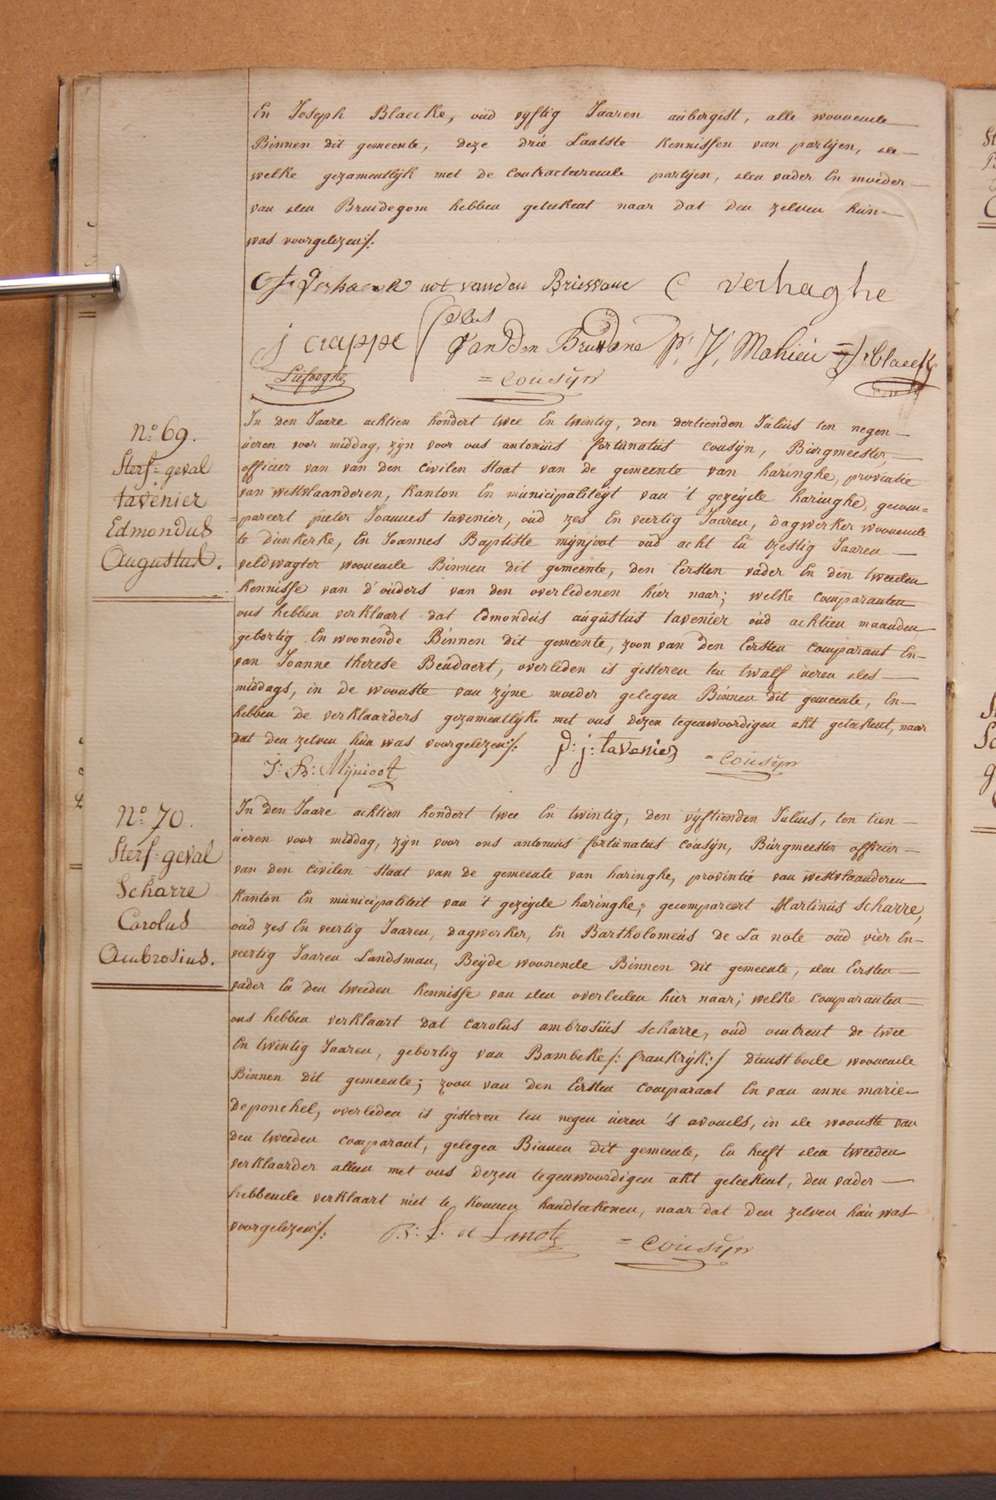 En Joseph Blaecke, oud vyftig Jaaren aubergist, alle woonende
Binnen dit gemeente, deze drie Laatste kennissen van partijen, de
welke gezamentlijk met de Contracteerende partijen, den vader En moeder
van den Bruidegom hebben geteekent naar dat den zelven hun
was voorgelezen/.
vanden Briessane C verhaghe
j crappe
Vanden P: J: Mahieu J: Blaecke
Liefooghe = Cousÿn
N.o 69.
Sterf=geval
tavenier
Edmondus
Augustus.
In den Jaare achtien hondert twee En twintig, den dertienden Julius ten negen
ueren voor middag, zijn voor ons antonius fortunatus cousijn, Burgmeester
officier van van den civilen staat van de gemeente van haringhe, provintie
van westvlaanderen, Kanton En municipaliteÿt van 't gezeijde haringhe, gecom=
=pareert pieter Joannes tavenier, oud zes En veertig Jaaren, dagwerker woonende
te dunkerke, En Joannes Baptiste mijnjoot oud acht En tzestig Jaaren
veldwagter woonende Binnen dit gemeente, den Eersten vader En den tweeden
kennisse van d'ouders van den overledenen hier naar; welke comparanten
ons hebben verklaart dat Edmondus augustus tavenier oud achtien maanden
geboortig En woonende Binnen dit gemeente, zoon van den Eersten comparant En
van Joanne therese Beudaert, overleden is gisteren ten twalf ueren des
middags, in de woonste van zijne moeder gelegen Binnen dit gemeente, En
hebben de verklaarders gezamentlijk met ons dezen tegenwoordigen akt geteekent, naar
dat den zelven hun was voorgelezen/.
J: B: Mijnioot P: j: tavenier = Cousÿn
N.o 70.
Sterf=geval
Scharre
Carolus
Ambrosius.
In den Jaare achtien hondert twee En twintig, den vijftienden Julius, ten tien
ueren voor middag, zijn voor ons antonius fortunatus cousijn, Burgmeester officier
van den civilen staat van de gemeente van haringhe, provintie van westvlaanderen
Kanton En municipaliteit van 't gezeijde haringhe; gecompareert Martinus scharre,
oud zes En veertig Jaaren, dagwerker, En Bartholomeus de La note oud vier En
veertig Jaaren Landsman, Beijde woonende Binnen dit gemeente, den Eersten
vader En den tweeden kennisse van den overleden hier naar; welke comparanten
ons hebben verklaart dat carolus ambrosius scharre, oud omtrent de twee
En twintig Jaaren, geboortig van Bambeke/: frankrijk:/ dienstbode woonende
Binnen dit gemeente; zoon van den Eersten comparant En van anne marie
Deponchel, overleden is gisteren ten negen ueren 's avonds, in de woonste van
den tweeden comparant, gelegen Binnen dit gemeente, En heeft den tweeden
verklaarder alleen met ons dezen tegenwoordigen akt geteekent, den vader
hebbende verklaart niet te konnen handteekenen, naar dat den zelven hun was
voorgelezen/. B: L: de Lanote = Cousÿn